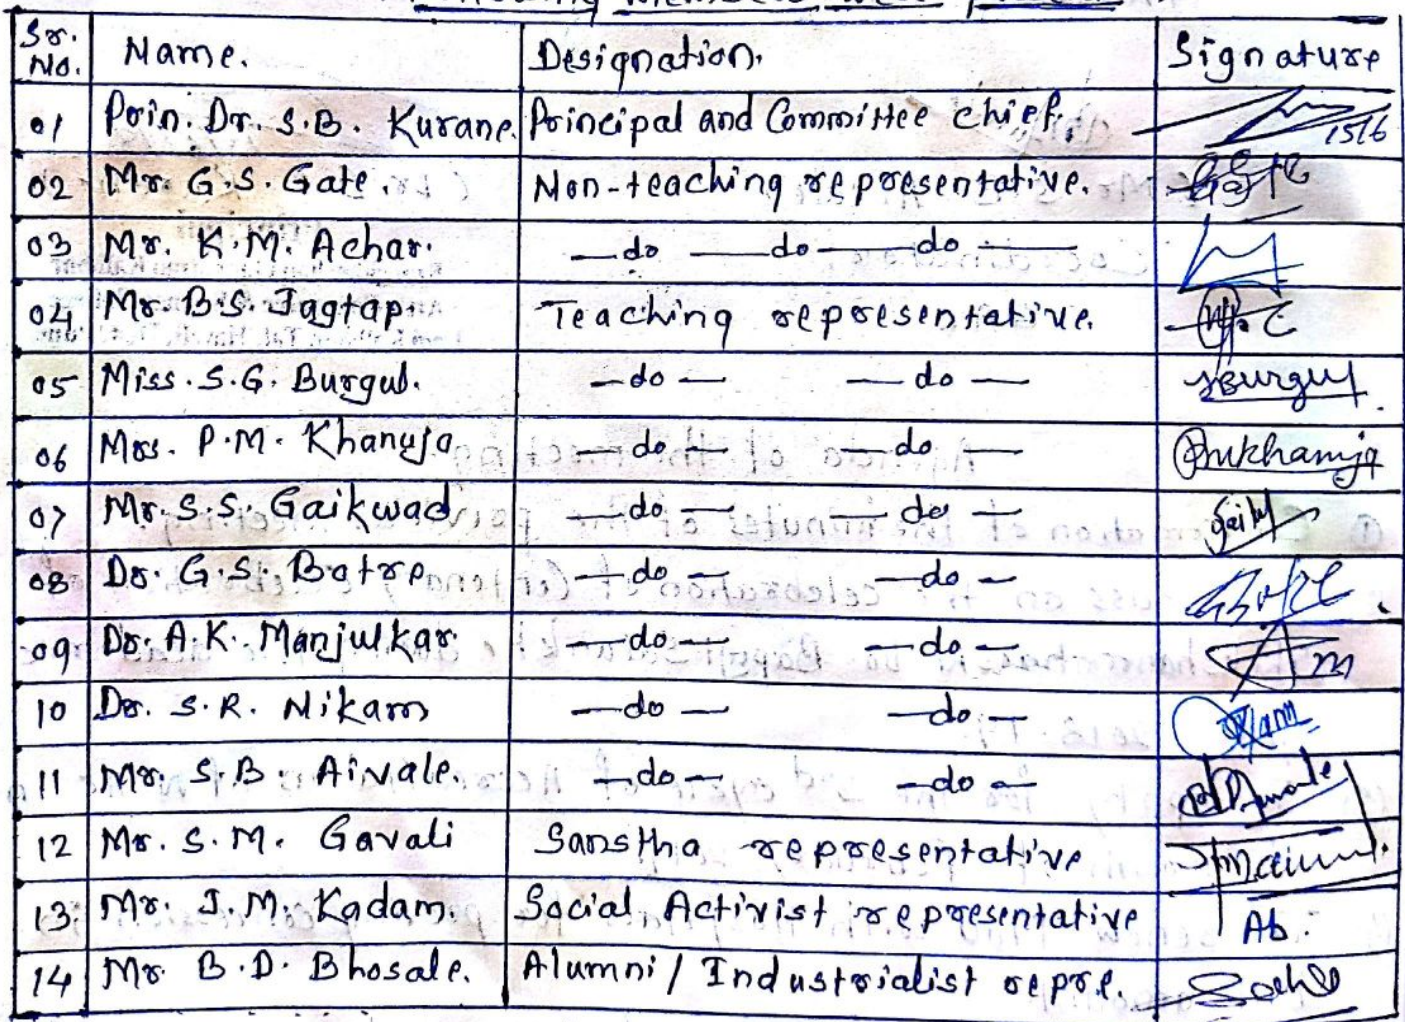 Following members were present
Sr. No. Name. Designation. Signature
01 Prin. Dr. S.B. Kurane. Principal and Committee chief. 15/6
02 Mr. G.S. Gate. Non-teaching representative.
03 Mr. K.M. Achar. —do —do —do —
04 Mr. B.S. Jagtap. Teaching representative.
05 Miss. S.G. Burgul. —do — —do — SBurgul
06 Mrs. P.M. Khanuja —do — —do — Pmkhanuja
07 Mr. S.S. Gaikwad —do — —do —
08 Dr. G.S. Botre —do — —do —
09 Dr. A.K. Manjulkar. —do — —do —
10 Dr. S.R. Nikam —do — —do —
11 Mr. S.B. Aivale. —do — —do —
12 Mr. S.M. Gavali Sanstha representative
13. Mr. J.M. Kadam. Social Activist representative Ab.
14 Mr B.D. Bhosale. Alumni/ Industrialist repre.